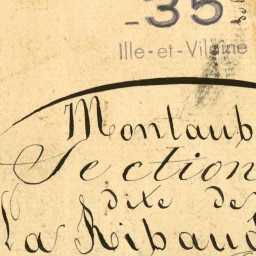 - 35
Ille-et-Vilaine
Montaub
Section
dite de
La Ribaud